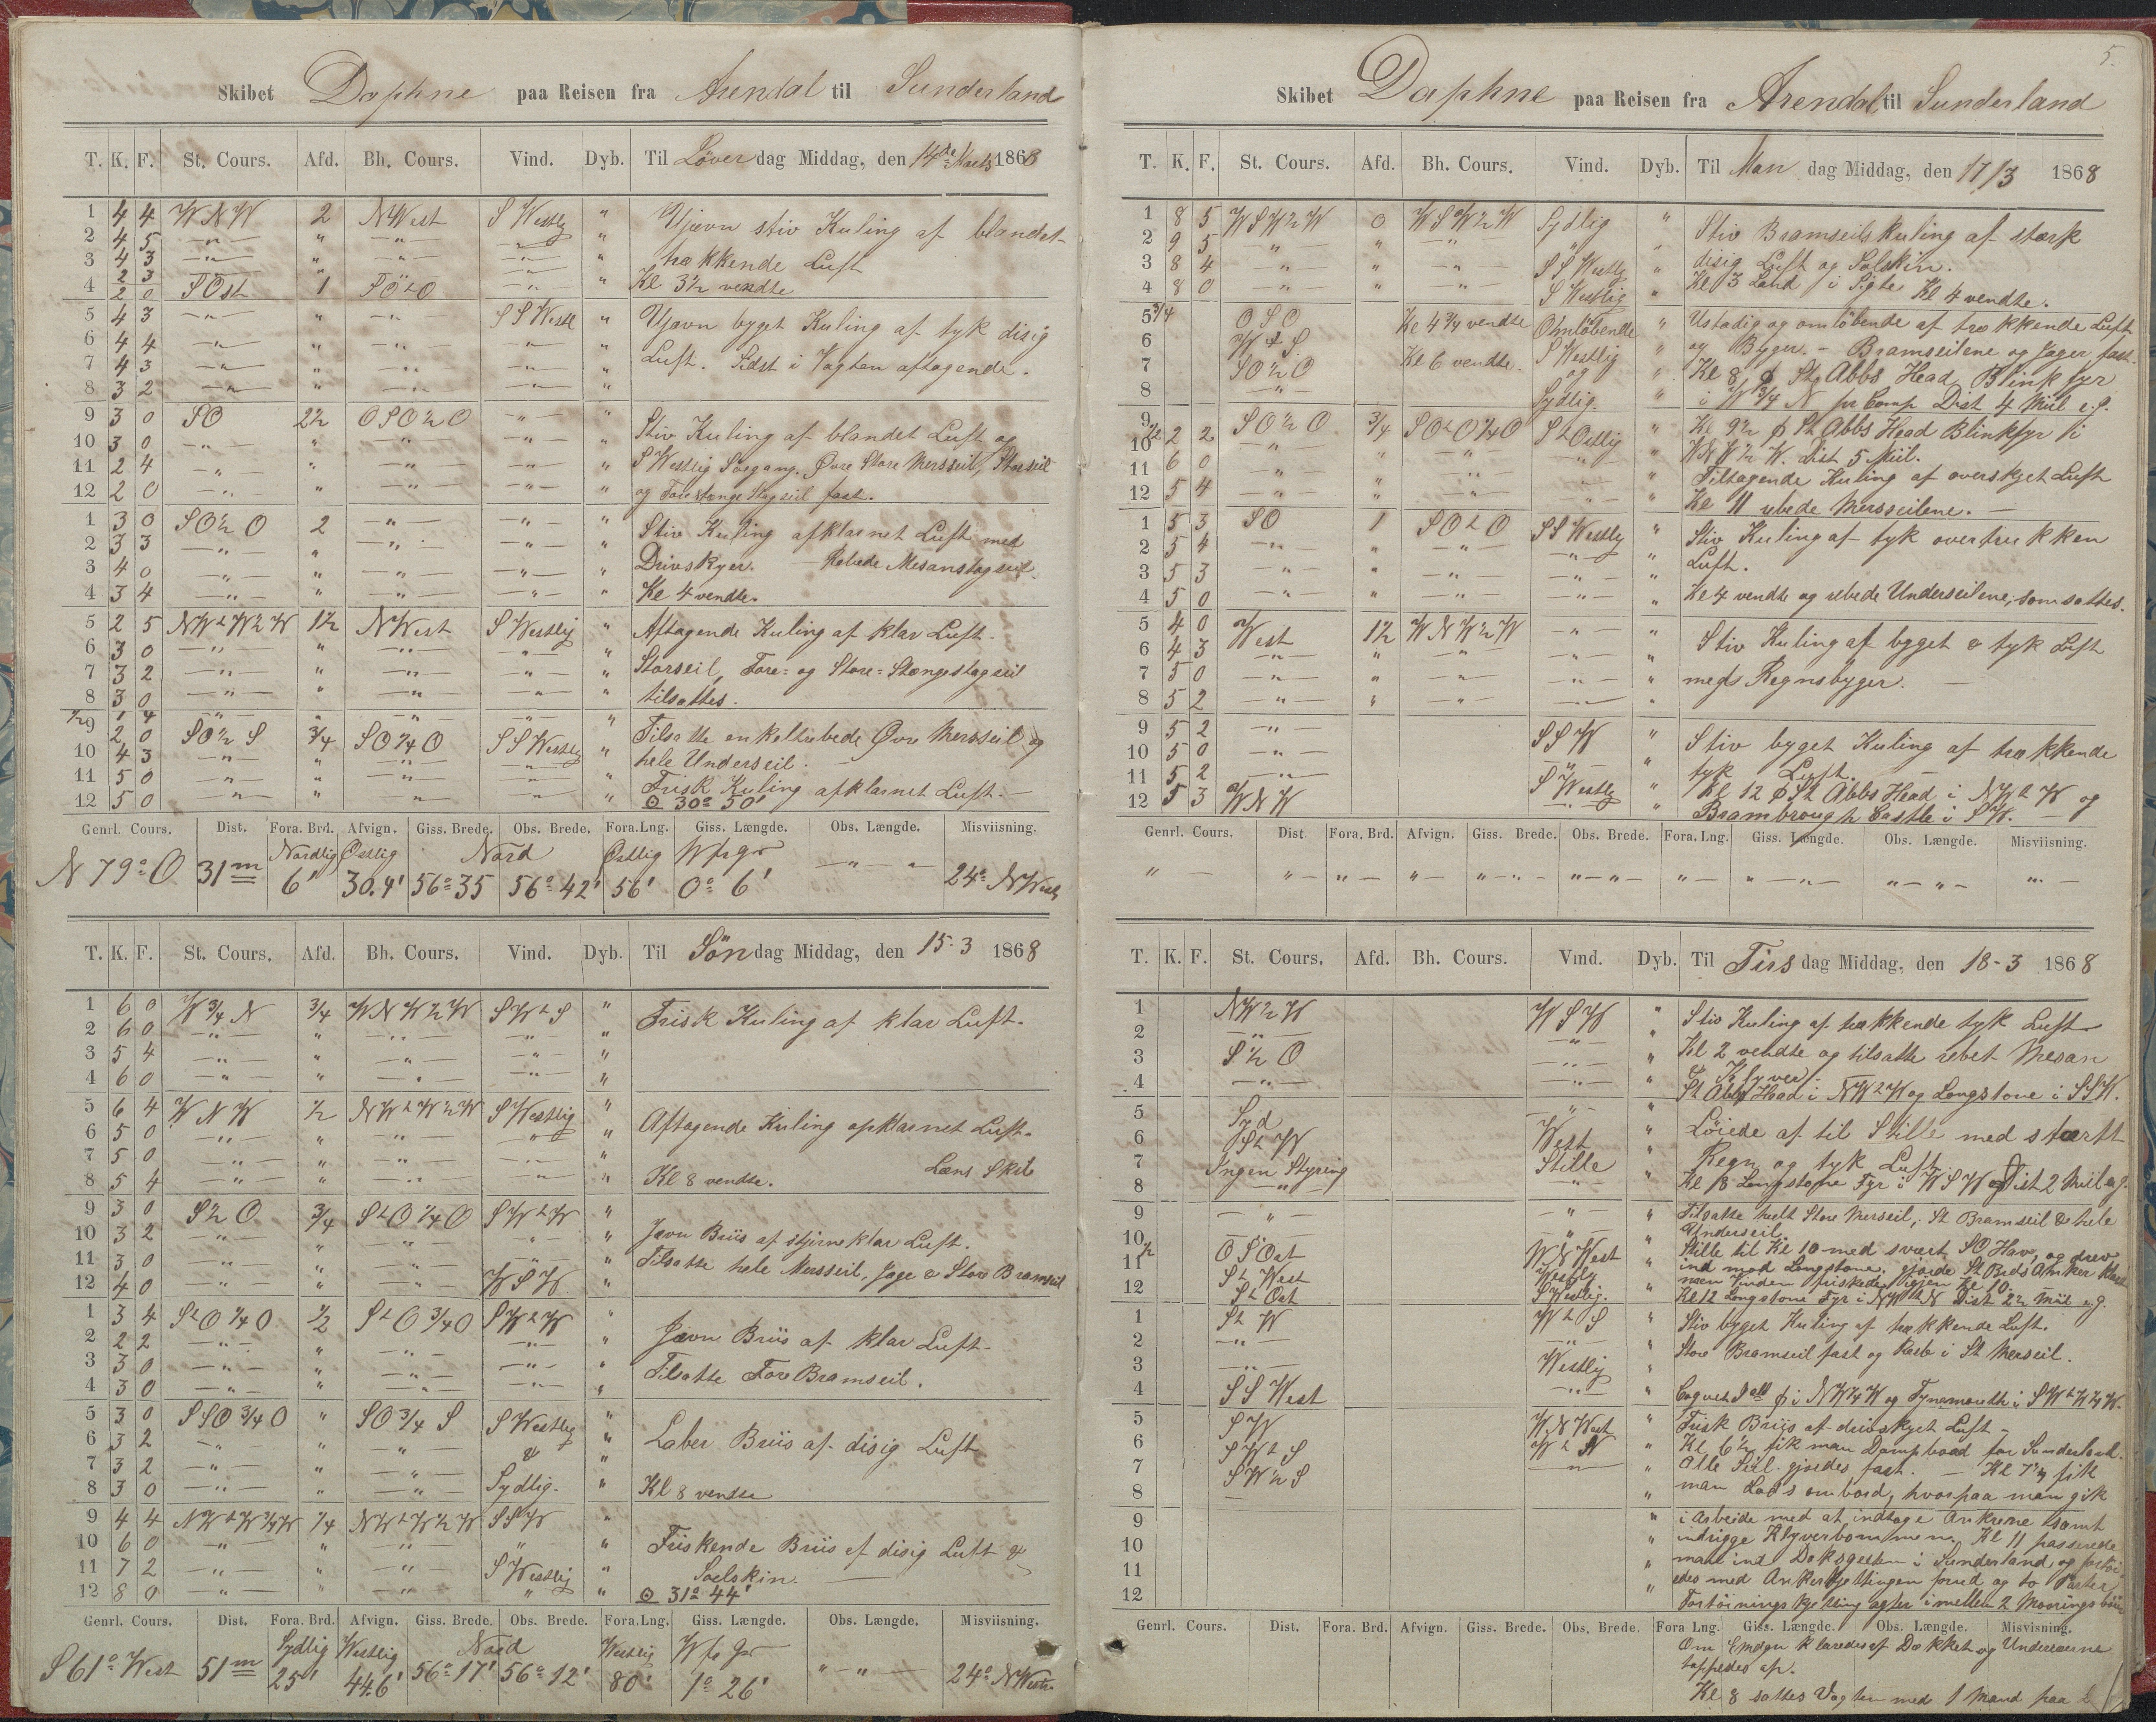 Skibet Daphne paa Reisen fra Arendal til Sunderland
T. K. F. St. Cours. Afd. Bh. Cours. Vind. Dyb. Til Löver dag Middag, den 14de Marts 1868
1 4 4 W N W 2 N West S Westlig " Ujævn stiv Kuling af blandet
2 4 5 —"— " —"— —"— "
3 4 3 —"— " —"— —"— " trækkende Luft
2 3
4 2 0 S Ost 1 S O t O —"— " Kl 3½ vendte
5 4 3 —"— " —"— S S Westl " Ujævn byget Kuling af tyk disig
6 4 4 —"— " —"— —"— "
7 4 3 —"— " —"— —"— " Luft. Sidst i Vagten aftagende.
8 3 2 —"— " —"— —"— "
9 3 0 S O 2½ O S O ½ O —"— " Stiv Kuling af blandet Luft og
10 3 0 —"— " —"— —"— "
11 2 4 —"— " —"— —"— " S Westlig Söegang. Øvre Store Mersseil, Storseil
12 2 0 —"— " —"— —"— " og Forestænge Stagseil fast.
1 3 0 S O ½ O 2 —"— —"— " Stiv Kuling afklarnet Luft med
2 3 3 —"— " —"— —"— "
3 4 0 —"— " —"— —"— " Drivskyer. — Rebede Mesanstagseil.
4 3 4 —"— " —"— —"— " Kl 4 vendte.
5 2 5 N W t W ½ W 1½ N West S Westlig " Aftagende Kuling af klar Luft.
6 3 0 —"— " —"— —"— "
7 3 2 —"— " —"— —"— " Storseil, Fore- og Store-Stængestagseil
8 3 0 —"— " —"— —"— " tilsattes.
½ 1 4 —"— " —"— —"— "
9 2 0 S O ½ S ¾ S O ¼ O S S Westlig Tilsatte enkeltrebede Øvre Mersseil og
10 4 3 —"— " —"— —"— " hele Underseil. —
11 5 0 —"— " —"— —"— " Frisk Kuling afklarnet Luft. —
12 5 0 —"— " —"— —"— " ⊙ 30° 50'
Genrl. Cours. Dist. Fora. Brd. Afvign. Giss. Brede. Obs. Brede. Fora.Lng. Giss. Længde. Obs. Længde. Misviisning.
Nordlig Østlig Nord Østlig W fr Gr
N 79° O 31 m 6' 30.4' 56° 35 56° 42' 56' 0° 6' —"— " 24° N Westl
T. K. F. St. Cours. Afd. Bh. Cours. Vind. Dyb. Til Sön dag Middag, den 15-3 1868
1 6 0 W ¾ N ¾ W N W ½ W S W t S " Frisk Kuling af klar Luft.
2 6 0 —"— " —"— —"— "
3 5 4 —"— " —"— —"— "
4 6 0 —"— " —"— —"— "
5 6 4 W N W ½ N W t W ½ W S Westlig " Aftagende Kuling opklarnet Luft.
6 5 0 —"— " —"— " "
7 5 0 —"— " —"— —"— "
8 5 4 —"— " —"— " " Kl 8 vendte. Læns Skib
9 3 0 S ½ O ¾ S t O ¼ O S W t W "
10 3 2 —"— " —"— —"— " Jævn Briis af stjerneklar Luft.
11 3 0 —"— " —"— —"— " Tilsatte hele Mersseil, Jage & Store Bramseil
12 4 0 —"— " —"— W S W "
1 3 4 S t O ¼ O ½ S t O ¾ O S W t W "
2 2 2 —"— " —"— —"— " Jævn Briis af klar Luft.
3 3 0 —"— " —"— —"— " Tilsatte Fore Bramseil.
4 3 0 —"— " —"— —"— "
5 3 0 S S O ¾ O " S O ¾ S S Westlig "
6 3 2 —"— " " & " Laber Briis af disig Luft
7 3 2 —"— " —"— "
8 3 0 —"— " —"— Sydlig. " Kl 8 vendte
9 4 4 N W t W ¾ W ¼ N W t W ½ W S S W "
10 6 0 —"— " —"— " " Friskende Briis af disig Luft &
11 7 2 —"— " —"— S Westlig " Soelskin. —
12 8 0 —"— " —"— " " ⊙ 31° 44'
Genrl. Cours. Dist. Fora. Brd. Afvign. Giss. Brede. Obs. Brede. Fora.Lng. Giss. Længde. Obs. Længde. Misviisning.
Sydlig Westlig Nord Westlig W fr Gr
S 61° West 51 m 25' 44.6' 56° 17' 56° 12' 80' 1° 26' "—"— 24° N Westl.
5.
Skibet Daphne paa Reisen fra Arendal til Sunderland
T. K. F. St. Cours. Afd. Bh. Cours. Vind. Dyb. Til Man dag Middag, den 17/3 1868
1 8 5 W S W ½ W 0 W S W ½ W Sydlig " Stiv Bramseilskuling af stærk
2 9 5 —"— " —"— " "
3 8 4 —"— " —"— S S Westlig " disig Luft og Solskin.
4 8 0 —"— " —"— S Westlig " Kl 3 Land i Sigte Kl 4 vendte.
5 ¾ O S O Kl 4¾ vendte Omlöbende " Ustadig og omlöbende af trækkende Luft
6 W t S. " og Byger. — Bramseilene og Jager fast.
7 S O ½ O Kl 6 vendte. S Westlig og " Kl 8 St Abbs Head Blinkfyr
8 —"— Sydlig. " i W ¾ N pr Comp Dist 4 Miil e.g.
9 S O ½ O ¾ S O t O ¼ O S t Ostlig " Kl 9½ St Abbs Head Blinkfyr i
½ 10 2 2 —"— " —"— " " W N W ½ W. Dist. 5 Miil.
11 6 0 —"— " —"— " " Tiltagende Kuling af overskyet Luft
12 5 4 —"— " —"— " " Kl 11 rebede Mersseilene. —
1 5 3 S O 1 S O t O S S Westlig " Stiv Kuling af tyk overtrukken
2 5 4 —"— " —"— —"— "
3 5 3 —"— " —"— —"— " Luft.
4 5 0 —"— " —"— —"— " Kl 4 vendte og rebede Underseilene, som sattes.
5 4 0 West 1½ W N W ½ W —"— "
6 4 3 —"— " —"— —"— " Stiv Kuling af byget & tyk Luft
7 5 0 —"— " —"— —"— " med Regnsbyger. —
8 5 2 —"— " —"— —"— "
9 5 2 —"— S S W " Stiv byget Kuling af trækkende
10 5 0 —"— —"— " tyk Luft.
11 5 2 —"— S Westlig " Kl 12 St Abbs Head i N W t W og
12 5 3 W N W —"— " Brambrough Castle i S W. —
Genrl. Cours. Dist. Fora. Brd. Afvign. Giss. Brede. Obs. Brede. Fora. Lng. Giss. Længde. Obs. Længde. Misviisning.
" — "— "—"— "— "—"— "—"— "— "—"— "—"— "—
T. K. F. St. Cours. Afd. Bh. Cours. Vind. Dyb. Til Tirs dag Middag, den 18-3 1868
1 N W ½ W W S W " Stiv Kuling af trækkende tyk Luft
2 —"— —"— " Kl 2 vendte og tilsatte rebet Mesan
3 S ½ O —"— " & Klyver.
4 —"— —"— " St Abbs Head i N W t W og Longstone i S S W.
5 Syd —"— " Löiede af til Stille med stærk
6 S t W West "
7 Ingen Styring Stille " Regn og tyk Luft
8 —"— —"— " Kl 8 Longstone Fyr i W S W Dist 2 Miil e.g.
9 —"— —"— " Tilsatte heelt Store Merseil, St Bramseil & hele
10 " " Underseil.
½ 11 O S Ost W N West " Stille til Kl 10 med svært S O Hav, og drev
12 S t West Westlig " ind mod Longstone. gjorde St Bbds Anker klart
S t Ost S Westlig. " men Vinden friskede igjen Kl 10.
Kl 12 Longstone Fyr i N W t N Dist 2½ Miil e.g.
1 S t W W t S " Stiv byget Kuling af trækkende Luft.
2 —"— —"— "
3 —"— Westlig " Store Bramseil fast og Reeb i St Merseil.
4 S S West —"— " Coquet i N W ¼ W og Tynemouth i S W t W ½ W.
5 S W W N West " Frisk Briis af drivskyet Luft —
6 S W t S W t N " Kl 6½ fik man Dampbaad for Sunderland.
7 S W ½ S —"— " Alle Seil gjordes fast. — Kl 7½ fik
8 " man Lods ombord, hvorpaa man gik
9 " i Arbeide med at indtage Ankrene samt
10 " indrigge Klyverbommen. Kl 11 passerede
11 " man ind Doksgesten i Sunderland og fortöi-
12 " edes med Ankerkjettingen forud og to Parter
Fortöinings kjetting agter imellem 2 Moorings böier
Genrl. Cours. Dist. Fora. Brd. Afvign. Giss. Brede. Obs. Brede. Fora Lng. Giss. Længde. Obs. Længde. Misviisning.
Om Emdgn klaredes af Dækket og Underraerne
toppedes op.
Kl 8 sattes Vagten med 1 Mand paa